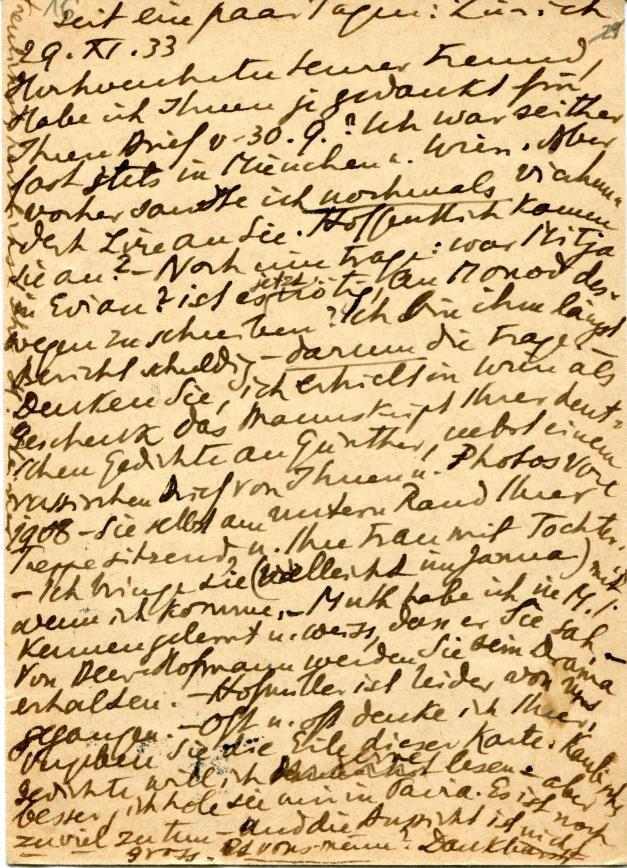 seit ein paar Tagen: Zürich
29. XI. 33
Hochverehrter teurer Freund,
Habe ich Ihnen je gedankt für
Ihren Brief v. 30. 9.? Ich war seither
fast stets in München u. Wien. Aber
vorher sandte ich nochmals
Lire an Sie. Hoffentlich kamen
sie an? – Noch eine Frage: war Mitja
in Evian? ist es jetzt nötig, an Monod des-
wegen zu schreiben? Ich bin ihm längst
Bericht schuldig – darum die Frage.
Denken Sie, ich erhielt in Wien als
Geschenk das Manuskript Ihrer deut-
schen Gedichte an Günther, nebst einem
russischen Brief von Ihnen u. Photos von
1908 – Sie selbst am untern Rand Ihrer
Treppe sitzend u. Ihre Frau mit Tochter.
– Ich bringe sie (vielleicht im Januar) mit,
wenn ich komme. – Muth habe ich in M.
kennengelernt u. weiss, dass er Sie sah –
Von Beer-Hofmann werden Sie sein Drama
erhalten. – Hofmiller ist leider von uns
gegangen. – Oft u. oft denke ich Ihrer,
Vergeben Sie die Eile dieser Karte.
Gedichte will ich gerne lesen – aber
besser, ich hole sie mir in Pavia. Es ist noch
zuviel zu tun – und die Aussicht ist nicht
gross. – Et vous-même? Dankbar